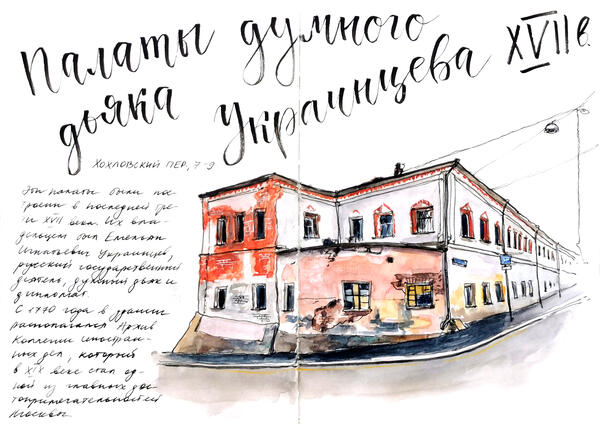 Палаты думного
дьяка Украинцева XVII в.
Хохловский пер., 7-9
Эти палаты были пос-
троены в последней тре-
ти XVII века. Их вла-
дельцем был Емельян
Игнатьевич Украинцев,
русский государственный
деятель, думный дьяк и
дипломат.
С 1770 года в здании
располагался Архив
Коллегии иностран-
ных дел, который
в XIX веке стал од-
ной из главных дос-
топримечательностей
Москвы.